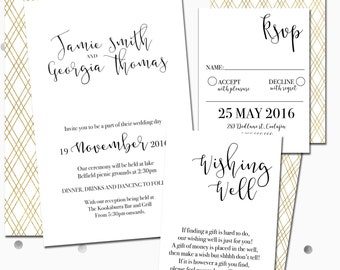 Jamie Smith
AND
Georgia Thomas
Invite you to be a part of their wedding day
19 November 2016
Our ceremony will be held at lake
Belfield picnic grounds at 2:30pm
DINNER, DRINKS AND DANCING TO FOLL
With our reception being held at
The Kookaburra Bar and Grill
From 5:30pm onwards.
Rsvp
NAME:
ACCEPT
with pleasure
DECLINE
with regret
25 MAY 2016
Wishing
Well
If finding a gift is hard to do,
our wishing well is just for you!
A gift of money is placed in the well,
then make a wish but shhhh don't tell!
If it is however a gift you find,
please feel